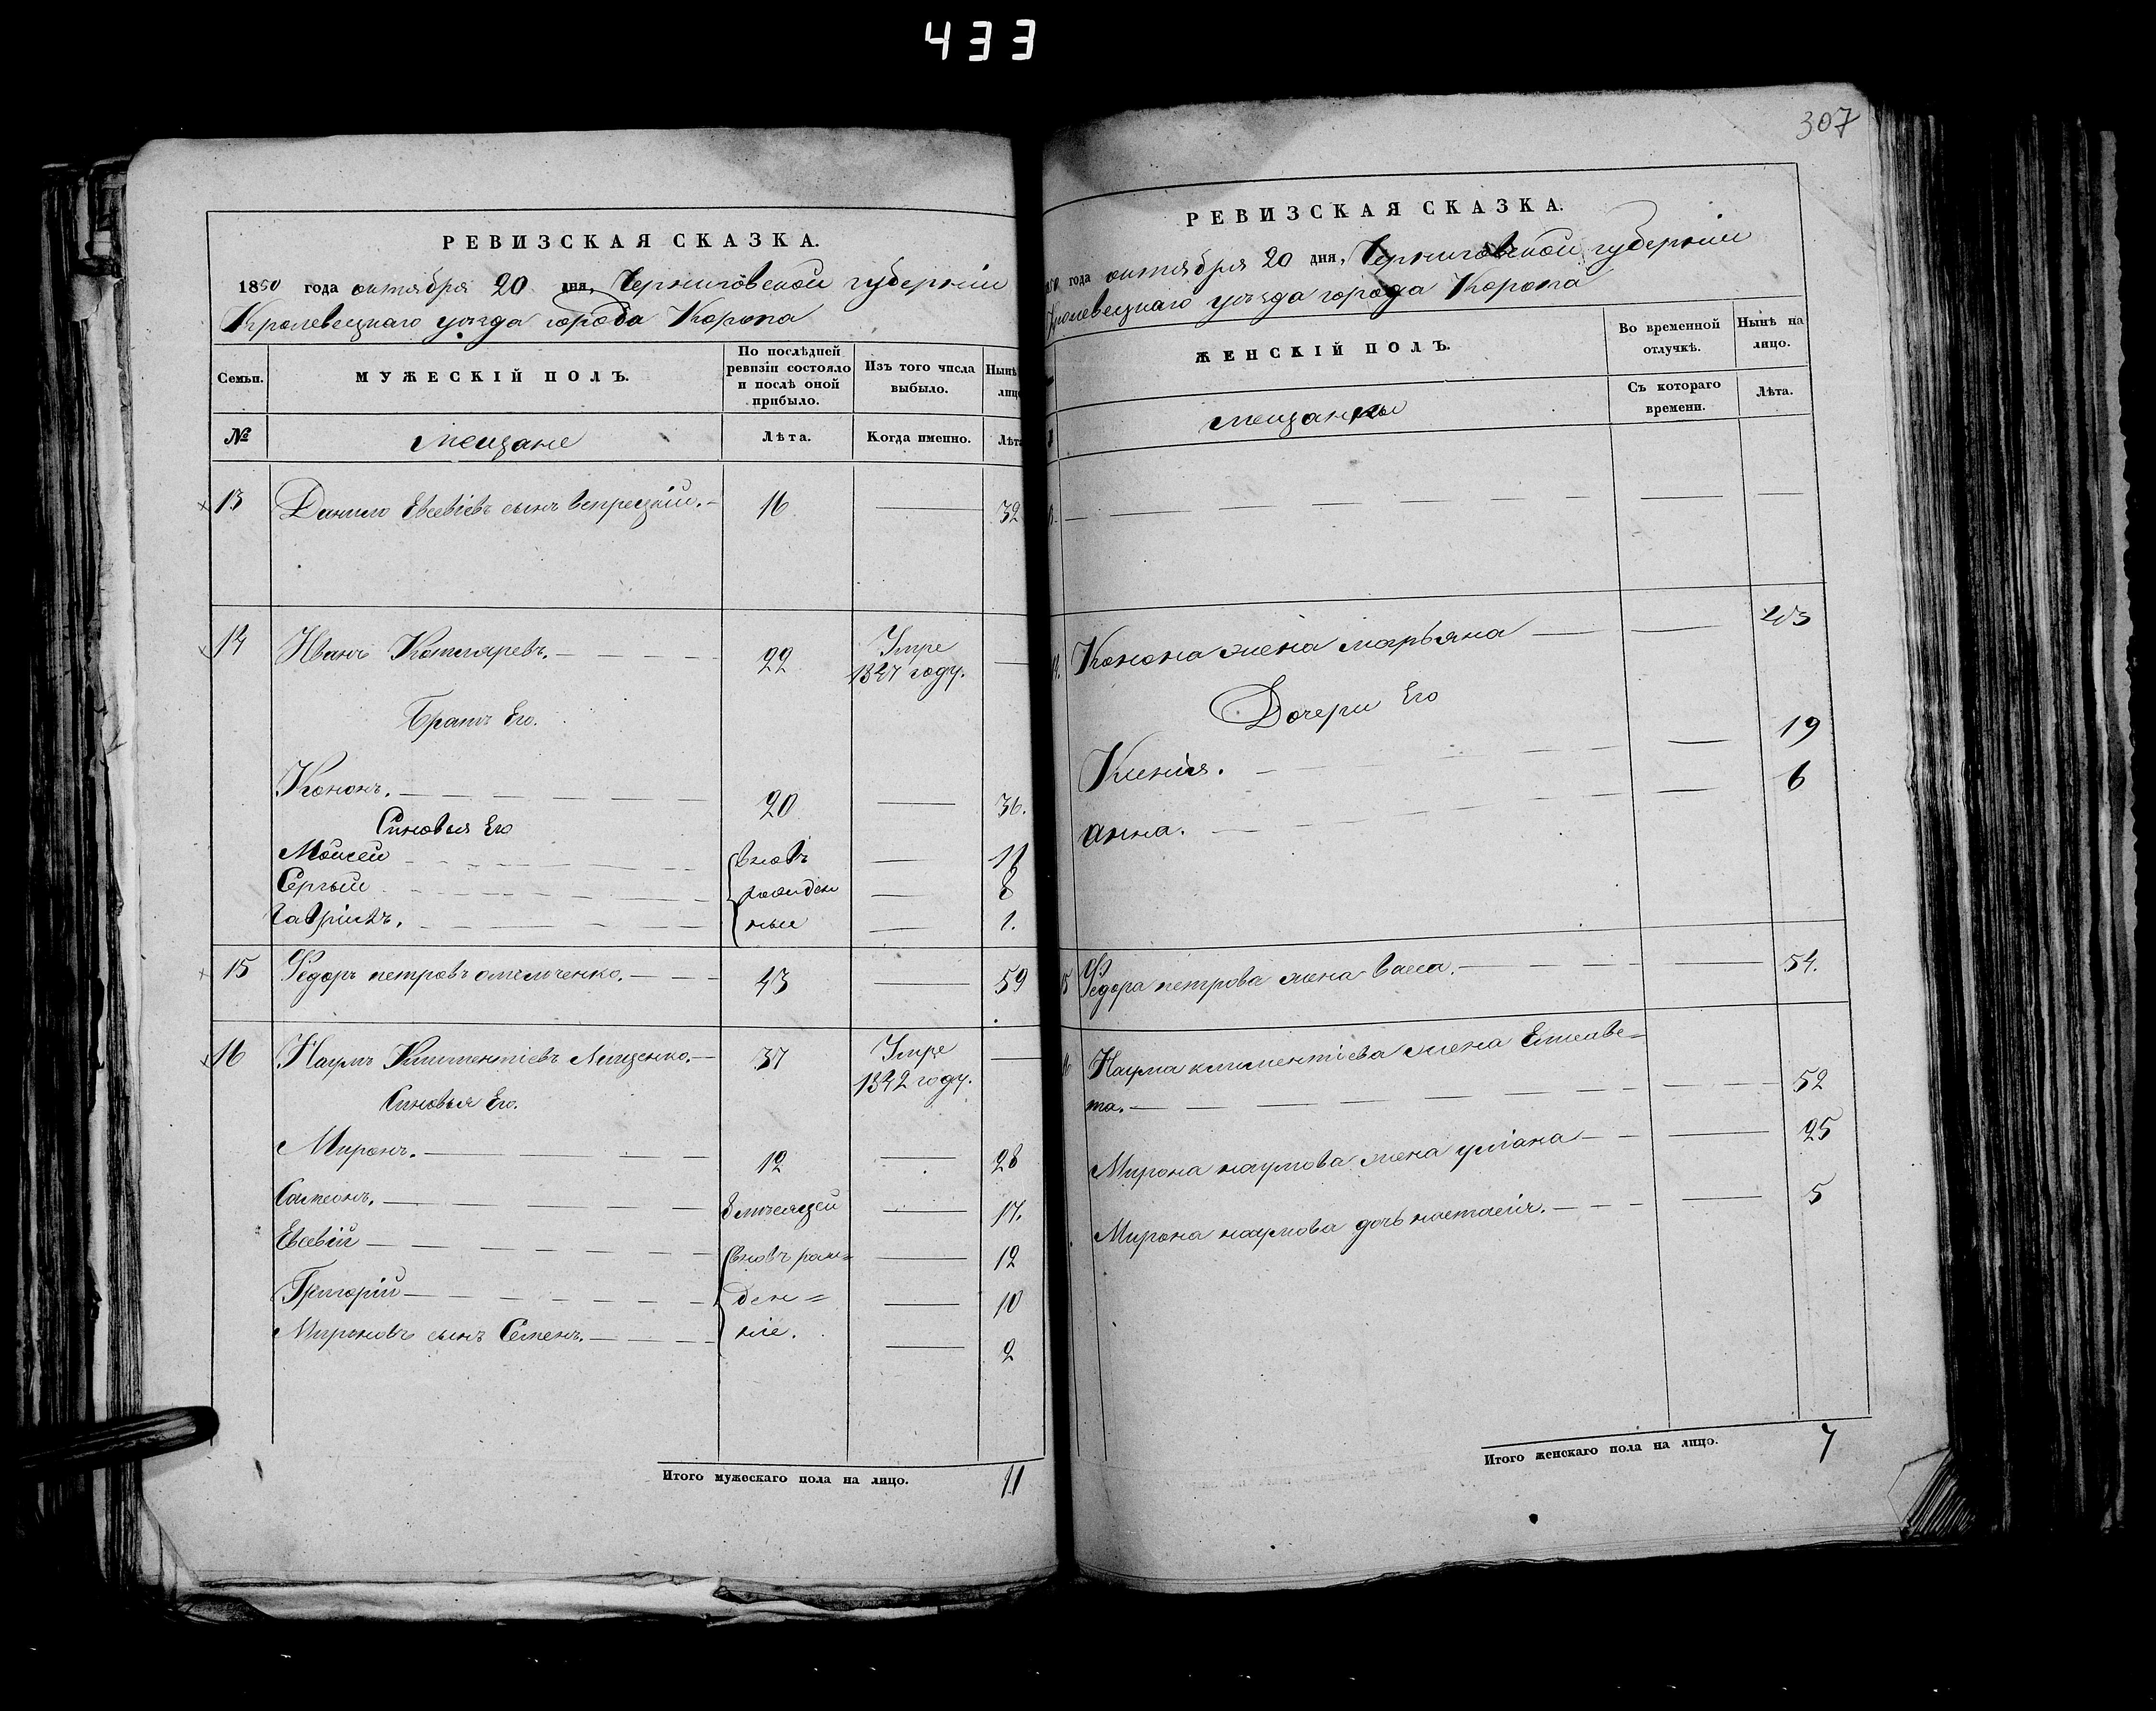 433
307
РЕВИЗСКАЯ СКАЗКА.
1850 года октября 20 дня, Черниговской губернiи
Кролевецкаго уѣзда города Коропа
Семьи. МУЖЕСКIЙ ПОЛЪ. По послѣдней ревизiи состояло и послѣ оной прибыло. Изъ того числа выбыло. Нынѣ
№ мещане Лѣта. Когда именно. Лѣта
13 Данило Евсевiевъ сынъ 16 32
14 Иванъ Котляревъ. 22 Умре 1847 году.
Братъ Его.
Кононъ. 20 36.
Синовья Его
Моисей вновъ 11
Сергѣй рожден 8
Гаврiилъ. ные 1.
15 Федоръ петровъ омельченко. 43 59
16 Наумъ Климентiевъ Лищенко. 37 Умре 1842 году.
Синовья Его.
Миронъ. 12 28
Самсонъ. 17.
Евсевiй вновъ рож= 12
Григорiй ден= 10
Мироновъ сынъ Семенъ. нiе. 2
Итого мужескаго пола на лицо. 11
РЕВИЗСКАЯ СКАЗКА.
года октября 20 дня, Черниговской губернiи
Кролевецкаго уѣзда города Коропа
ЖЕНСКIЙ ПОЛЪ. Во временной отлучкѣ. Нынѣ на лицо.
мещанки Съ котораго времени. Лѣта.
Конона жена марьяна 43
Дочери Его
Ксенiя. 19
анна. 6
15 Федора петрова жена васса. 54.
Наума климентiева жена Елисаве=
та. 52
Мирона наумова жена улiана 25
Мирона наумова дочь настасiя. 5
Итого женскаго пола на лицо. 7